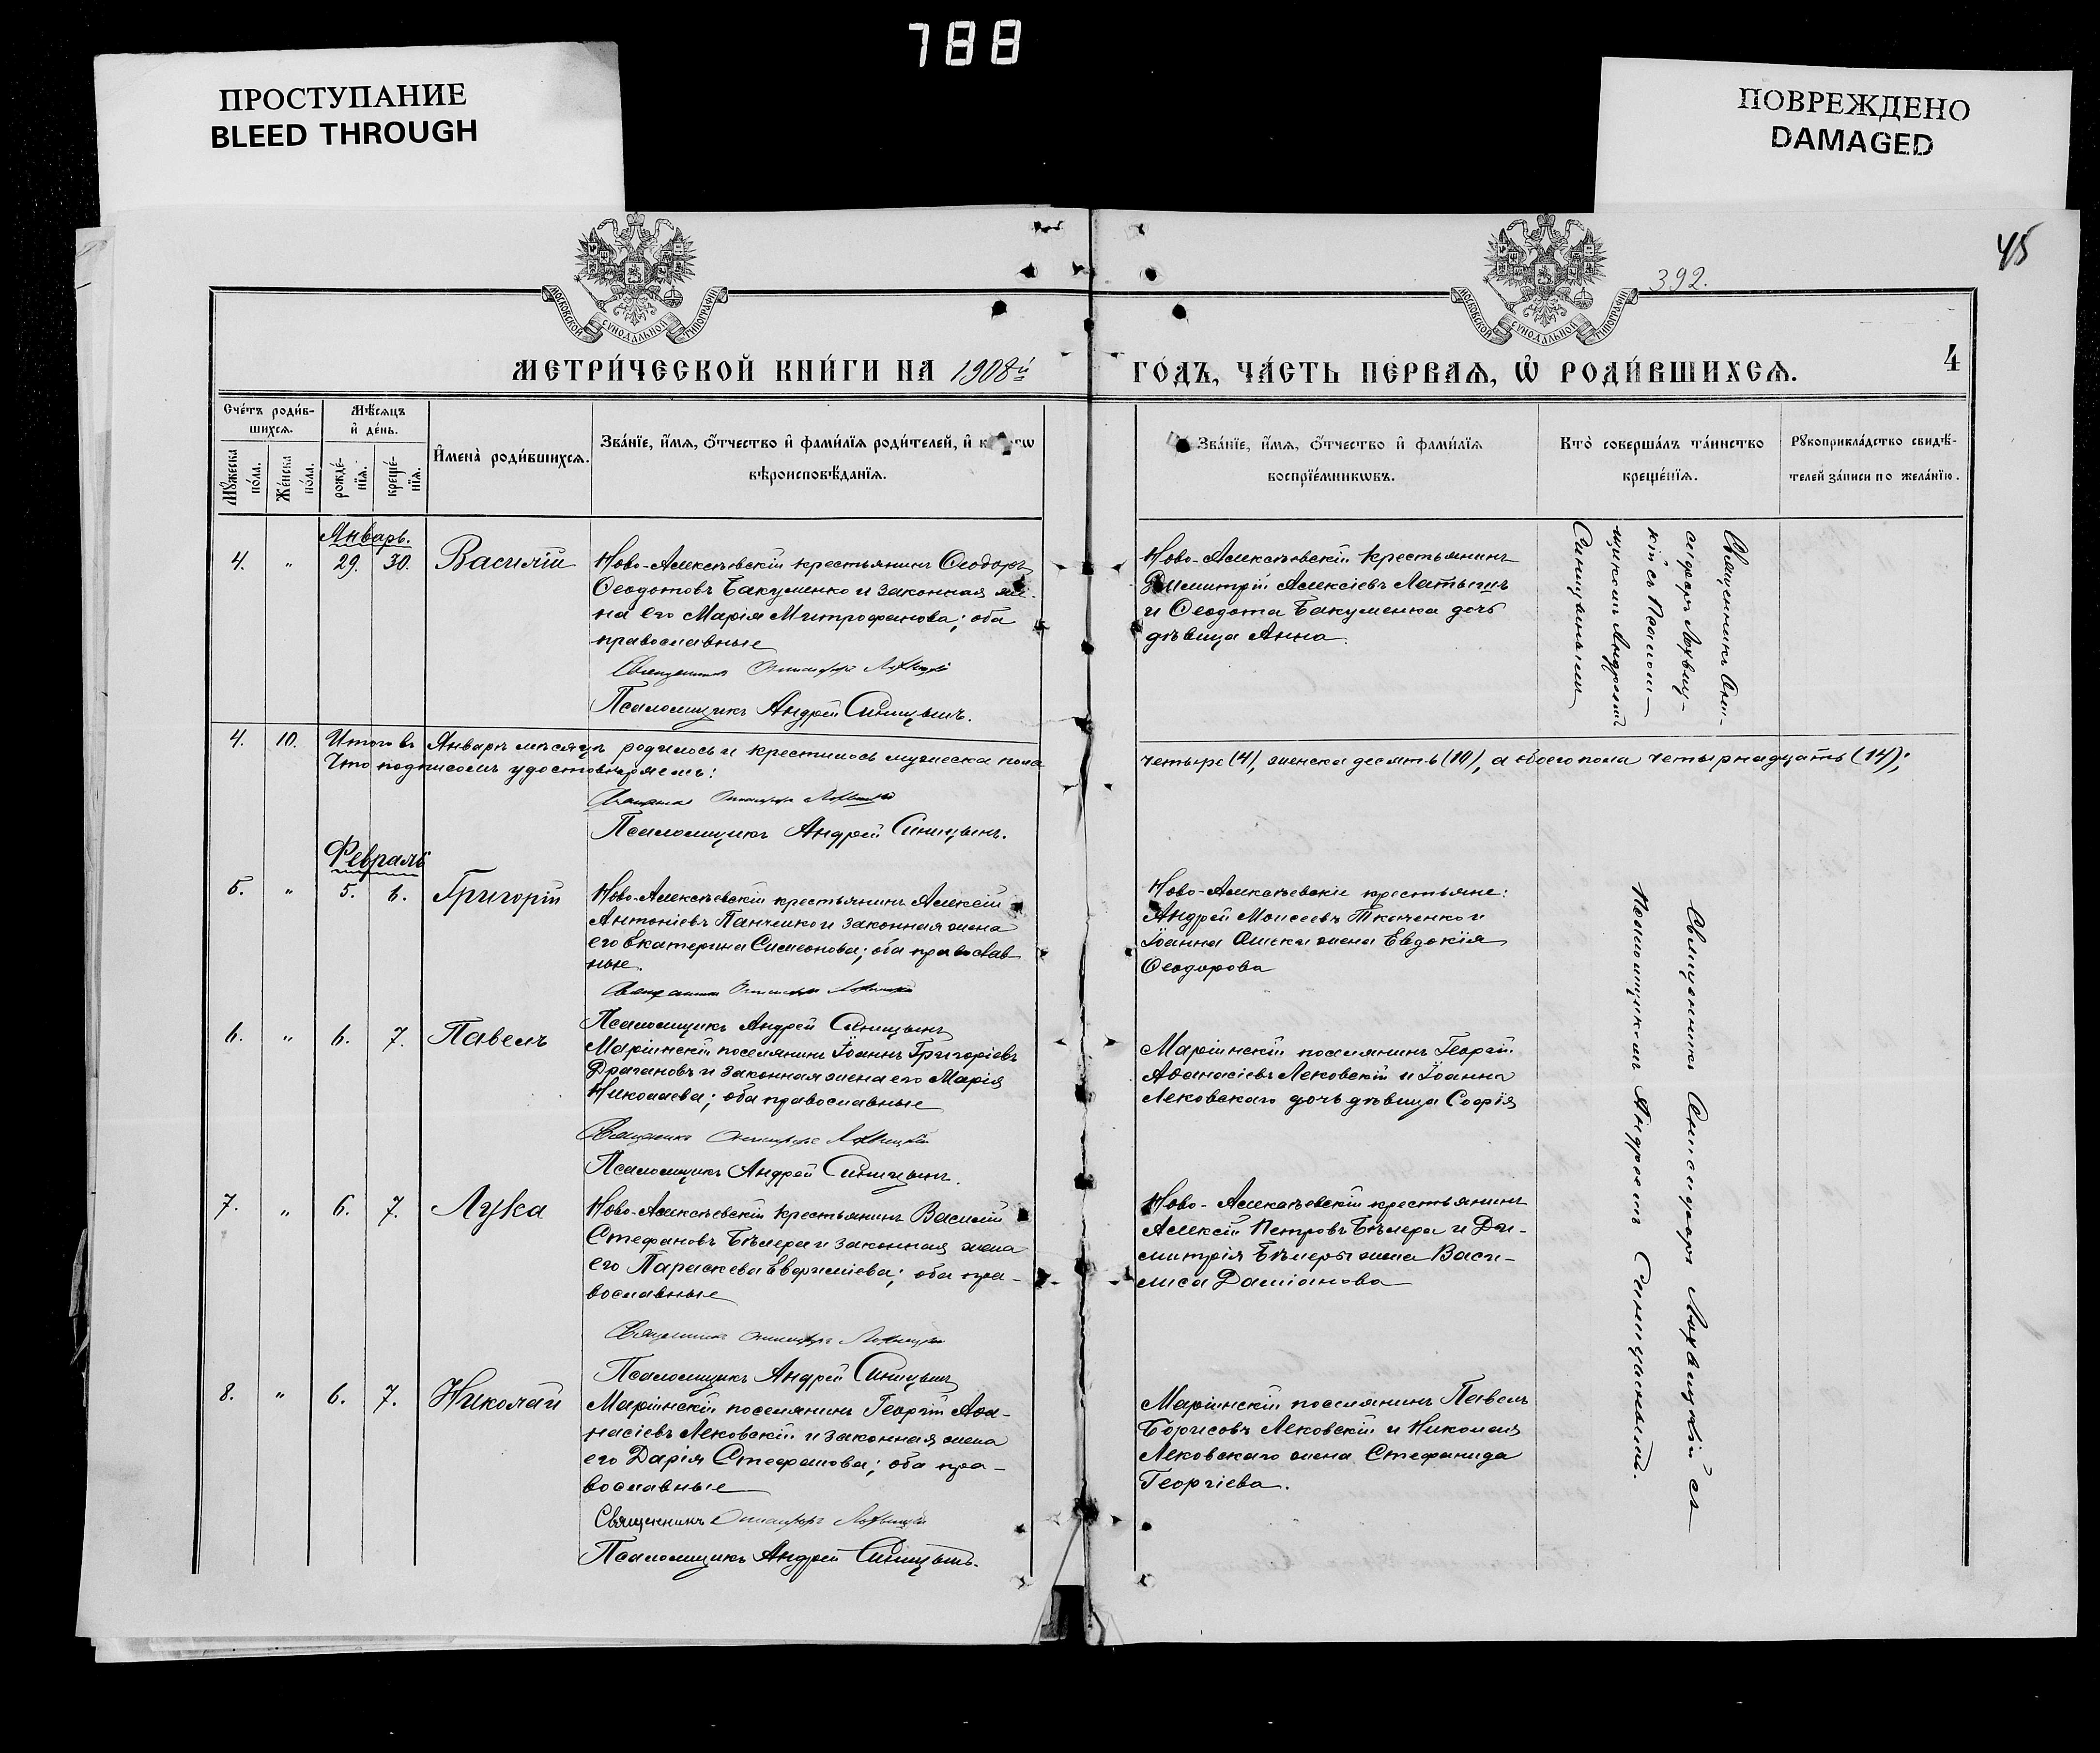 788
ПРОСТУПАНИЕ
BLEED THROUGH
ПОВРЕЖДЕНО
DAMAGED
45
392.
МОСКОВСКОЙ СѴНОДАЛЬНОЙ ТИПОГРАФІИ
МОСКОВСКОЙ СѴНОДАЛЬНОЙ ТИПОГРАФІИ
МЕТРИ́ЧЕСКОЙ КНИ́ГИ НА 1908й
ГО́ДЪ, ЧА́СТЬ ПЕ́РВАѦ, Ѡ҆ РОДИ́ВШИХСѦ.
4
Сче́тъ роди́в-
шихсѧ.
Мѣ́сѧцъ
и҆ де́нь.
Мꙋ́жеска
по́ла.
Же́нска
по́ла.
рожде́-
нїѧ.
креще́-
нїѧ.
И҆мена̀ роди́вшихсѧ.
Зва́нїе, и҆́мѧ, ѻ҆́тчество и҆ фами́лїѧ роди́телей, и҆
вѣроисповѣ́данїѧ.
Зва́нїе, и҆́мѧ, ѻ҆́тчество и҆ фами́лїѧ
воспрїе́мникѡвъ.
Кто̀ соверша́лъ та́инство
креще́нїѧ.
Рꙋкоприкла́дство свидѣ́-
телей за́писи по жела́нїю.
Январь.
4. " 29. 30. Василій
Ново-Алексѣевскій крестьянинъ Ѳеодоръ
Ѳеодотовъ Бакуменко и законная же-
на его Марія Митрофанова; оба
православные
Священникъ Лохвицкій
Псаломщикъ Андрей Синицынъ.
Ново-Алексѣевскій крестьянинъ
Димитрій Алексіевъ Латышъ
и Ѳеодота Бакуменка дочь
дѣвица Анна
Священникъ Они-
сифоръ Лохвиц-
кій съ Псалом-
щикомъ Андреемъ
Синицынымъ
4. 10. Итого въ Январѣ мѣсяцѣ родилось и крестилось мужеска пола
четыре (4), женска десять (10), а обоего пола четырнадцать (14);
Что подписомъ удостовѣряемъ:
Священникъ Лохвицкій
Псаломщикъ Андрей Синицынъ.
Февраль
5. " 5. 6. Григорій
Ново-Алексѣевскій крестьянинъ Алексій
Антоніевъ Панченко и законная жена
его Екатерина Симеонова; оба православ-
ные.
Священникъ Лохвицкій
Псаломщикъ Андрей Синицынъ
Ново-Алексѣевскіе крестьяне:
Андрей Моисеевъ Ткаченко и
Іоанна жена Евдокія
Ѳеодорова
6. " 6. 7. Павелъ
Маріинскій поселянинъ Іоаннъ Григоріевъ
Драгановъ и законная жена его Марія
Николаева; оба православные
Священникъ Лохвицкій
Псаломщикъ Андрей Синицынъ.
Маріинскій поселянинъ Георгій
Аѳанасіевъ Лековскій и Іоанна
Лековскаго дочь дѣвица Софія
7. " 6. 7. Лука
Ново-Алексѣевскій крестьянинъ Василій
Стефановъ Бѣлера и законная жена
его Параскева Евфиміева; оба пра-
вославные
Священникъ Лохвицкій
Псаломщикъ Андрей Синицынъ
Ново-Алексѣевскій крестьянинъ
Алексій Петровъ Бѣлера и Ди-
митрія Бѣлеры жена Васи-
лиса Даміанова
8. " 6. 7. Николай
Маріинскій поселянинъ Георгій Аѳа-
насіевъ Лековскій и законная жена
его Дарія Стефанова; оба пра-
вославные
Священникъ Лохвицкій
Псаломщикъ Андрей Синицынъ.
Маріинскій поселянинъ Павелъ
Борисовъ Лековскій и Николая
Лековскаго жена Стефанида
Георгіева.
Священникъ Онисифоръ Лохвицкій съ
Псаломщикомъ Андреемъ Синицынымъ.